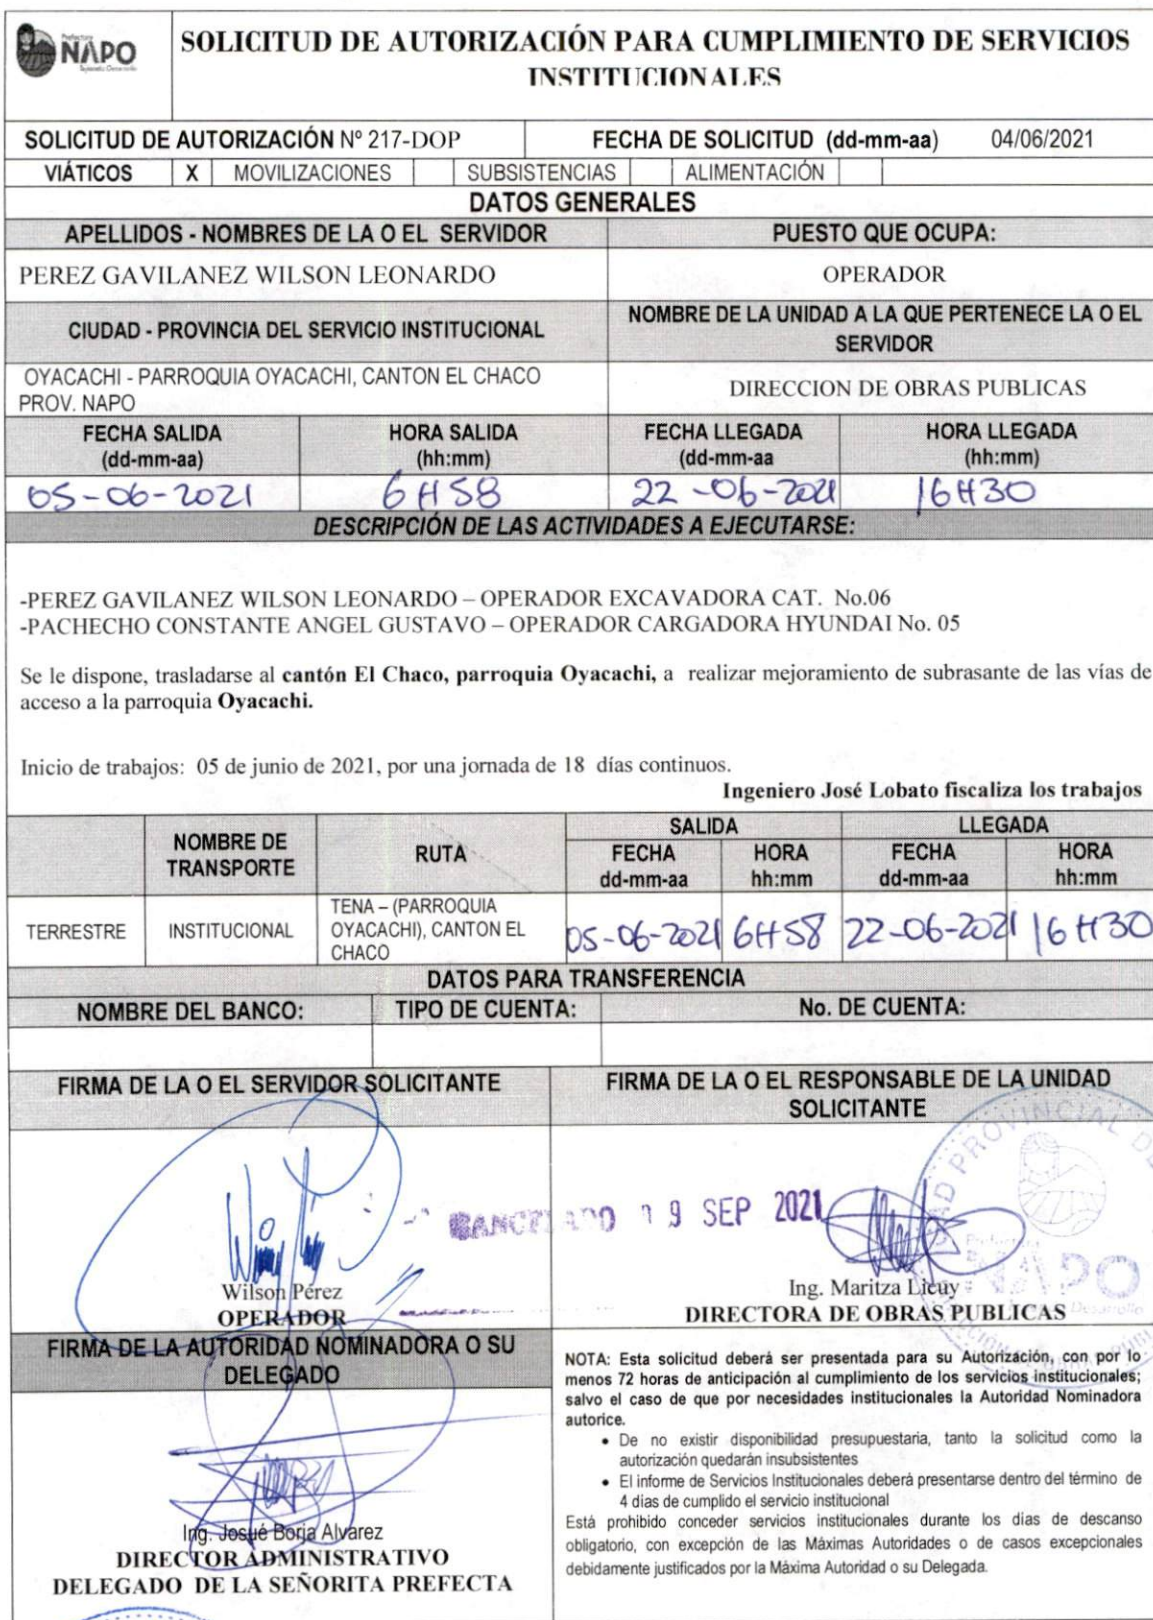 Prefectura
NAPO
SOLICITUD DE AUTORIZACIÓN PARA CUMPLIMIENTO DE SERVICIOS
INSTITUCIONALES
SOLICITUD DE AUTORIZACIÓN Nº 217-DOP FECHA DE SOLICITUD (dd-mm-aa) 04/06/2021
VIÁTICOS X MOVILIZACIONES SUBSISTENCIAS ALIMENTACIÓN
DATOS GENERALES
APELLIDOS - NOMBRES DE LA O EL SERVIDOR PUESTO QUE OCUPA:
PEREZ GAVILANEZ WILSON LEONARDO OPERADOR
CIUDAD - PROVINCIA DEL SERVICIO INSTITUCIONAL NOMBRE DE LA UNIDAD A LA QUE PERTENECE LA O EL
SERVIDOR
OYACACHI - PARROQUIA OYACACHI, CANTON EL CHACO
PROV. NAPO
DIRECCION DE OBRAS PUBLICAS
FECHA SALIDA HORA SALIDA FECHA LLEGADA HORA LLEGADA
(dd-mm-aa) (hh:mm) (dd-mm-aa (hh:mm)
05-06-2021 6H58 22-06-2021 16H30
DESCRIPCIÓN DE LAS ACTIVIDADES A EJECUTARSE:
-PEREZ GAVILANEZ WILSON LEONARDO – OPERADOR EXCAVADORA CAT. No.06
-PACHECHO CONSTANTE ANGEL GUSTAVO – OPERADOR CARGADORA HYUNDAI No. 05
Se le dispone, trasladarse al cantón El Chaco, parroquia Oyacachi, a realizar mejoramiento de subrasante de las vías de
acceso a la parroquia Oyacachi.
Inicio de trabajos: 05 de junio de 2021, por una jornada de 18 días continuos.
Ingeniero José Lobato fiscaliza los trabajos
NOMBRE DE
TRANSPORTE
RUTA
SALIDA LLEGADA
FECHA HORA FECHA HORA
dd-mm-aa hh:mm dd-mm-aa hh:mm
TERRESTRE INSTITUCIONAL
TENA – (PARROQUIA
OYACACHI), CANTON EL
CHACO
05-06-2021 6H58 22-06-2021 16H30
DATOS PARA TRANSFERENCIA
NOMBRE DEL BANCO: TIPO DE CUENTA: No. DE CUENTA:
FIRMA DE LA O EL SERVIDOR SOLICITANTE FIRMA DE LA O EL RESPONSABLE DE LA UNIDAD
SOLICITANTE
9 SEP 2021
Wilson Pérez
OPERADOR
Ing. Maritza Licuy
DIRECTORA DE OBRAS PUBLICAS
PROVINCIAL DE
Prefectura
NAPO
FIRMA DE LA AUTORIDAD NOMINADORA O SU
DELEGADO
Ing. Josué Borja Alvarez
DIRECTOR ADMINISTRATIVO
DELEGADO DE LA SEÑORITA PREFECTA
NOTA: Esta solicitud deberá ser presentada para su Autorización, con por lo
menos 72 horas de anticipación al cumplimiento de los servicios institucionales;
salvo el caso de que por necesidades institucionales la Autoridad Nominadora
autorice.
• De no existir disponibilidad presupuestaria, tanto la solicitud como la
autorización quedarán insubsistentes
• El informe de Servicios Institucionales deberá presentarse dentro del término de
4 días de cumplido el servicio institucional
Está prohibido conceder servicios institucionales durante los días de descanso
obligatorio, con excepción de las Máximas Autoridades o de casos excepcionales
debidamente justificados por la Máxima Autoridad o su Delegada.